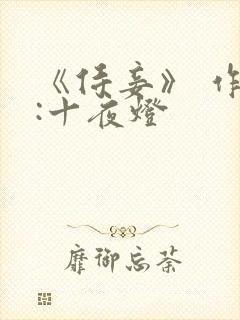 《侍妾》 作
:十夜燈
靡御忘荼